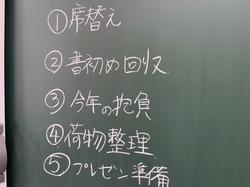 ①席替え
②書初め回収
③今年の抱負
④荷物整理
⑤プレゼン準備